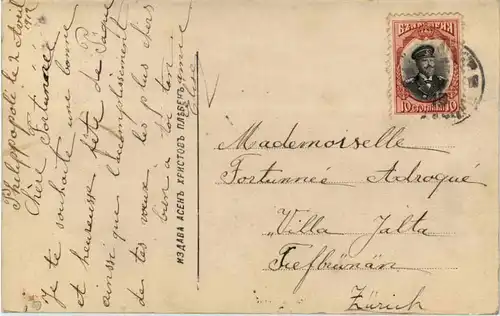 Philippopoli le 2 Avril
Chère Fortunée
Je te souhaite une bonne
et heureusse fête de Pâque
ainssi que l'accomplissement
de tes voeux les plus chers
bien a toi ton
amie
ИЗДАВА АСЕНЪ ХРИСТОВЪ ПЛѢВЕНЪ
БЪЛГАРИЯ
10 СТОТИНКИ 10
Mademoiselle
Fortunnée Adroqué
„Villa Jalta
Tiefbrünän
Zürich